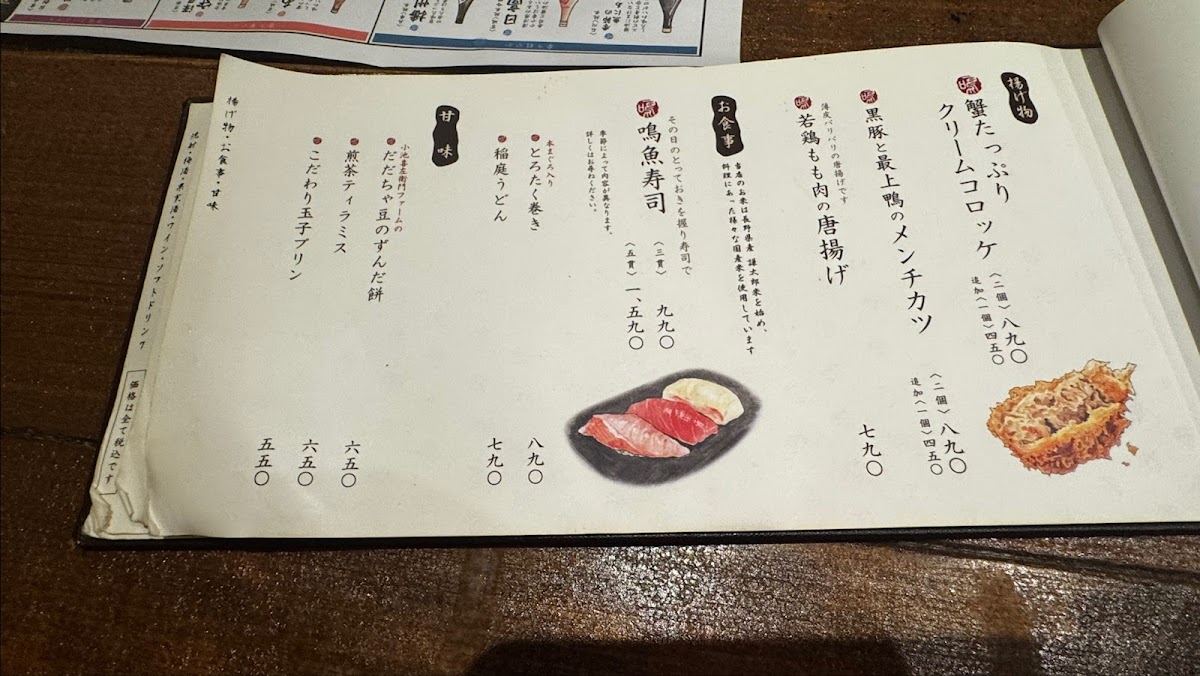 揚げ物
蟹たっぷり
クリームコロッケ
〈二個〉八九〇
追加〈一個〉四五〇
黒豚と最上鴨のメンチカツ
〈二個〉八九〇
追加〈一個〉四五〇
薄皮パリパリの唐揚げです
若鶏もも肉の唐揚げ
七九〇
お食事
当店のお米は長野県産 謙太郎米を始め、
料理にあった様々な国産米を使用しています
その日のとっておきを握り寿司で
鳴魚寿司
〈三貫〉 九九〇
〈五貫〉 一、五九〇
季節によって内容が異なります。
詳しくはお尋ねください。
本まぐろ入り
とろたく巻き
八九〇
稲庭うどん
七九〇
甘味
小池喜左衛門ファームの
だだちゃ豆のずんだ餅
六五〇
煎茶ティラミス
六五〇
こだわり玉子プリン
五五〇
揚げ物・お食事・甘味
焼酎・梅酒・果実酒・ワイン・ソフトドリンク
価格は全て税込です